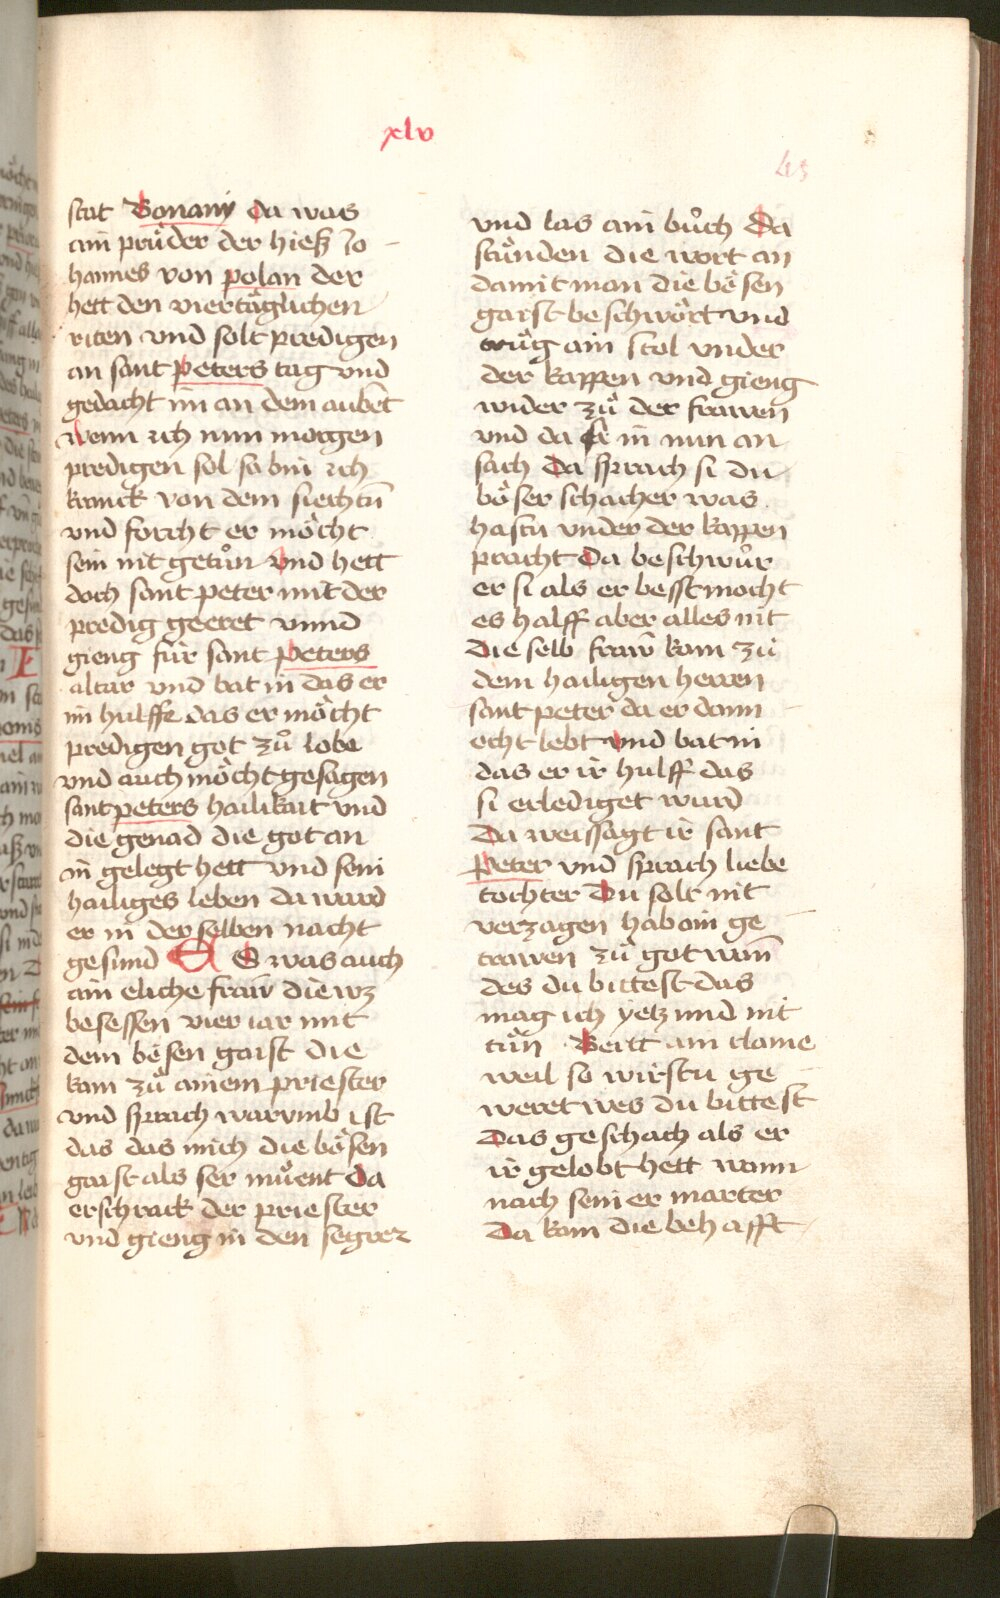 xlv
45
stat Bonany Da was
ain prüder der hieß Jo
hannes von polan der
hett den viertäglichen
riten vnd solt predigen
an sant Peters tag vnd
gedacht im an dem aubēt
wenn ich nun morgen
predigen sol so bin ich
kranck von dem siechtū
vnd forcht er möcht
sein nit getůn Vnd hett
doch sant peter mit der
predig geeret vnnd
gieng für sant Peters
altar vnd bat in das er
im hulffe das er möcht
predigen got zů lobe
vnd auch möcht gesagen
sant peters hailikait vnd
die genad die got an
in gelegt hett vnd sein
hailiges leben da ward
er in der selben nacht
gesund Es was auch
ain eliche fraw die wz
besessen vier iar mit
dem bösen gaist die
kam zů ainem priester
vnd sprach warvmb ist
das das mich die bösen
gaist als ser müent Da
erschrack der priester
vnd gieng in den segrer
vnd las ain bůch Da
stůnden die wort an
damit man die bösen
gaist beschwört vnd
trůg ain stol vnder
der kappen vnd gieng
wider zů der frawen
vnd da si in nun an
sach Da sprach si du
böser schacher was
hastu vnder der kappen
pracht Da beschwůr
er si als er besst mocht
es halff aber alles nit
Die selb fraw kam zů
dem hailigen herren
sant peter da er dann
echt lebt vnd bat in
das er ir hulff das
si erlediget wurd
Da weissagt ir sant
Peter vnd sprach liebe
tochter Du solt nit
verzagen hab ain ge
trawen zů got wann
des du bittest das
mag ich yetzund nit
tůn Beitt ain claine
weil so wirstu ge
weret wes du bittest
Das geschach als er
ir gelobt hett wann
nach seiner marter
Da kam die behafft